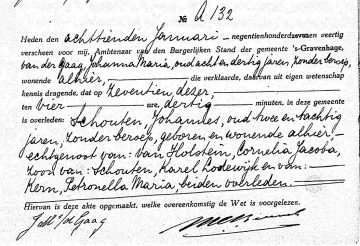 № A 132
Heden den achttienden Januari – negentienhonderd zeven en veertig
verscheen voor mij, Ambtenaar van den Burgerlijken Stand der gemeente 's-Gravenhage,
van der Gaag, Johanna Maria, oud acht en dertig jaren, zonder beroep,
wonende alhier, die verklaarde, dat van uit eigen wetenschap
kennis dragende, dat op zeventien dezer,
ten vier ure, dertig minuten, in deze gemeente
is overleden: Schouten, Johannes, oud twee en tachtig
jaren, zonder beroep, geboren en wonende alhier,
echtgenoot van: van Holstein, Cornelia Jacoba,
zoon van: Schouten, Karel Lodewijk en van:
Kern, Petronella Maria, beiden overleden.
Hiervan is deze akte opgemaakt, welke overeenkomstig de Wet is voorgelezen.
J. M. v/d Gaag